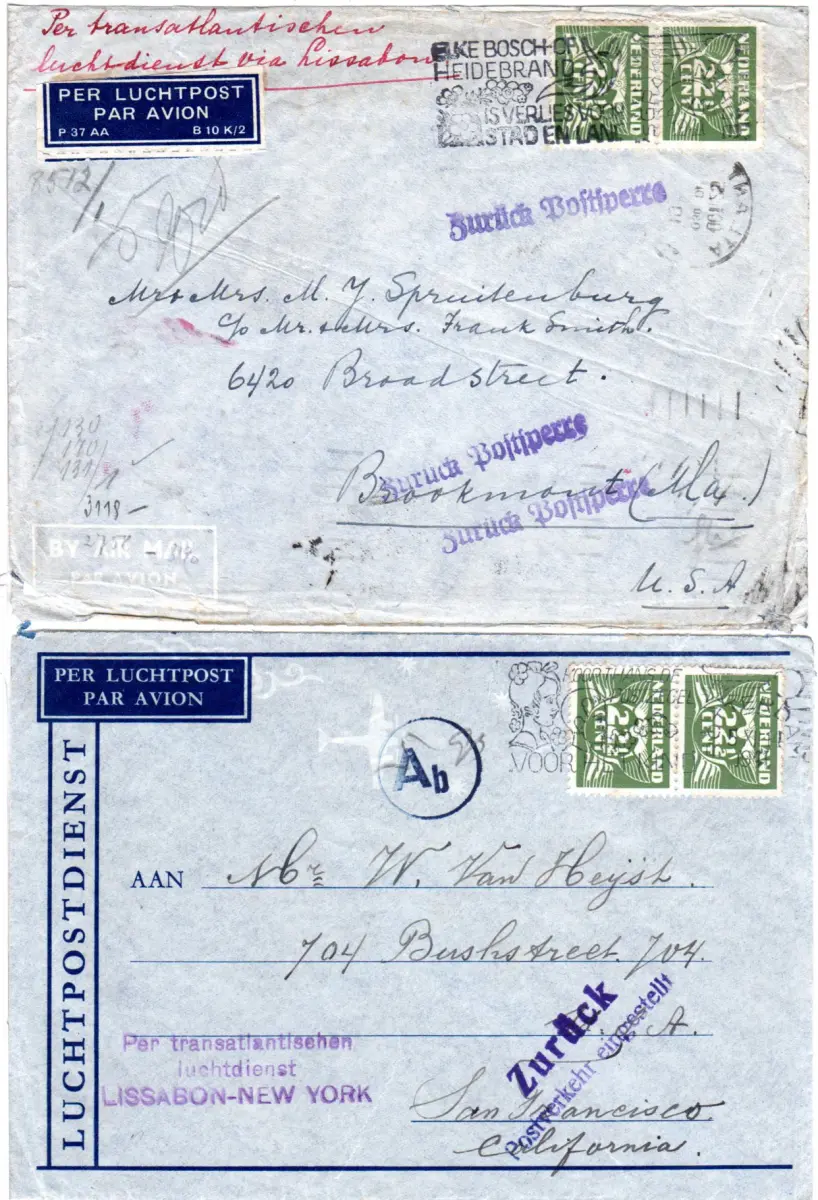 Per transatlantischen
luchtdienst via Lissabon
PER LUCHTPOST
PAR AVION
P 37 AA B 10 K/2
ELKE BOSCH-OF
HEIDEBRAND
IS VERLIES VO
STAD EN LAN
NEDERLAND
22½
CENT
NEDERLAND
22½
CENT
8512
Zurück Postsperre
Mr & Mrs. M. J. Spruitenburg
c/o Mr. & Mrs. Frank Smith.
6420 Broadstreet.
130
170
131/1
Zurück Postsperre
Brookmont (Ma.)
Zurück Postsperre
3118 -
BY AIR MAIL
PAR AVION
U.S.A
PER LUCHTPOST
PAR AVION
LUCHTPOSTDIENST
Ab
VOOR
NEDERLAND
22½
CENT
NEDERLAND
22½
CENT
AAN Mr W. Van Heyst.
704 Bushstreet. 704.
A.
Per transatlantischen
luchtdienst
LISSABON-NEW YORK
Zurück
Postverkehr eingestellt
San Francisco.
California.